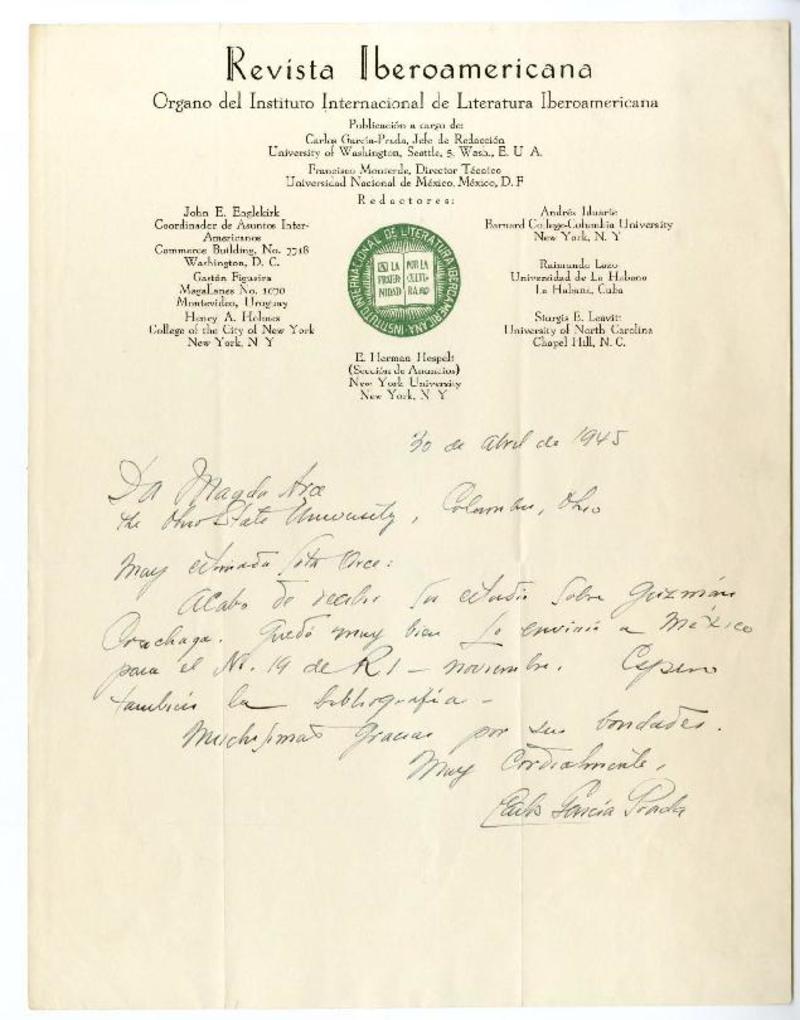 Revista Iberoamericana
Organo del Instituto Internacional de Literatura Iberoamericana
Publicación a cargo de:
Carlos García-Prada, Jefe de Redacción
University of Washington, Seattle, 5, Wash., E. U A.
Francisco Monterde, Director Técnico
Universidad Nacional de México, México, D. F
Redactores:
John E. Englekirk
Coordinador de Asuntos Inter-
Americanos
Commerce Building, No. 7718
Washington, D. C.
Gastón Figueira
Magallanes No. 1070
Montevideo, Uruguay
Henry A. Holmes
College of the City of New York
New York, N Y
INSTITUTO INTERNACIONAL DE LITERATURA IBEROAMERICANA
A LA FRATERNIDAD
POR LA CULTURA
Andrés Iduarte
Barnard College-Columbia University
New York, N. Y
Raimundo Lazo
Universidad de La Habana
La Habana, Cuba
Sturgis E. Leavitt
University of North Carolina
Chapel Hill, N. C.
E. Herman Hespelt
(Sección de Anuncios)
New York University
New York, N Y
30 de abril de 1945
Da Magda Arce
The Ohio State University, Columbus, Ohio
Muy estimada Srta Arce:
Acabo de recibir su estudio sobre Guzmán
Cruchaga. Quedó muy bien. Lo enviaré a México
para el N. 19 de R I — noviembre. Espero
también la bibliografía —
Muchísimas gracias por sus bondades.
Muy Cordialmente,
Carlos García Prada